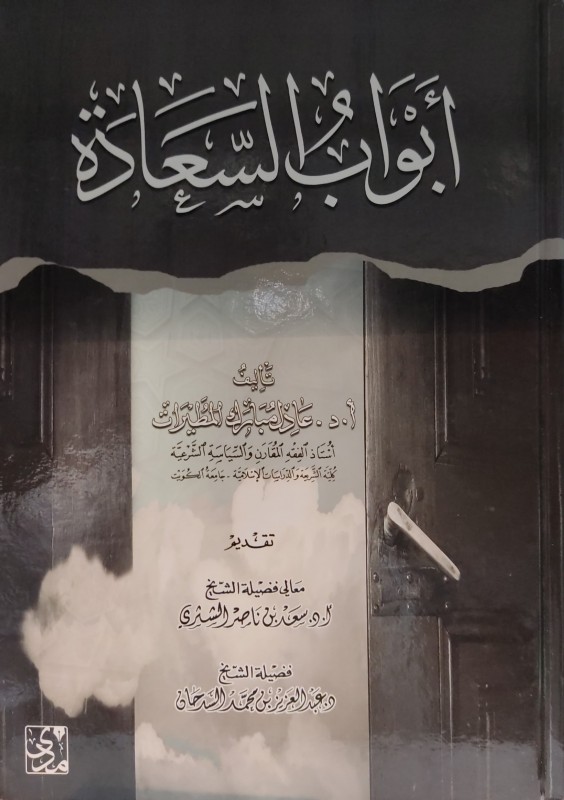 أَبْوَابُ السَّعَادَة
تَأليفُ
أ.د. عَادِل مُبَارَك المُطَيْرَات
أُسْتَاذ الفِقْهِ المُقَارَنِ وَالسِّيَاسَةِ الشَّرْعِيَّة
كُليَّة الشَّرِيعَة وَالدِّرَاسَات الإسْلَامِيَّة - جَامِعَة الكُوَيْت
تقديم
معالي فضيلة الشيخ
أ.د. سَعد بن ناصر الشثري
فضيلة الشيخ
د. عبد العزيز بن محمد السدحان